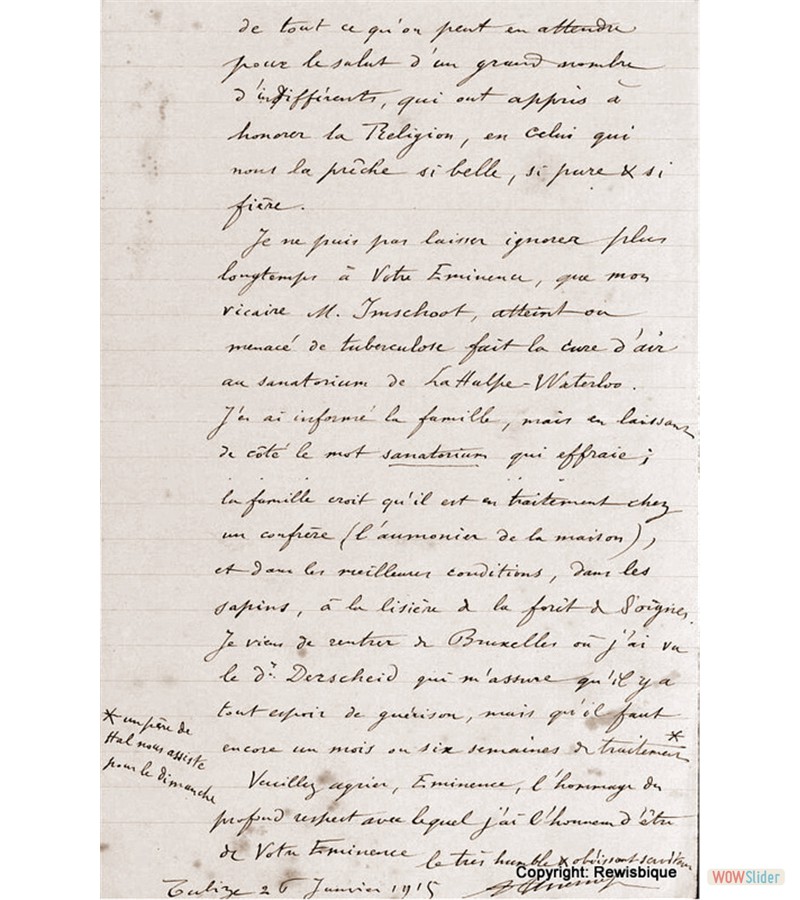 de tout ce qu'on peut en attendre
pour le salut d'un grand nombre
d'indifférents, qui ont appris à
honorer la Religion, en celui qui
nous la prêche si belle, si pure & si
fière.
Je ne puis pas laisser ignorer plus
longtemps à Votre Eminence, que mon
vicaire M. Imschoot, atteint ou
menacé de tuberculose fait la cure d'air
au sanatorium de La Hulpe-Waterloo.
J'en ai informé la famille, mais en laissant
de côté le mot sanatorium qui effraie ;
la famille croit qu'il est en traitement chez
un confrère (l'aumonier de la maison),
et dans les meilleures conditions, dans les
sapins, à la lisière de la forêt de Soignes.
Je viens de rentrer de Bruxelles où j'ai vu
le dr. Derscheid qui m'assure qu'il y a
tout espoir de guérison, mais qu'il faut
encore un mois ou six semaines de traitement *
* un père de
Hal nous assiste
pour le dimanche
Veuillez agréer, Eminence, l'hommage du
profond respect avec lequel j'ai l'honneur d'être
de Votre Eminence le très humble & obéissant serviteur
Tubize 26 Janvier 1915
Copyright: Rewisbique
WOWSlider